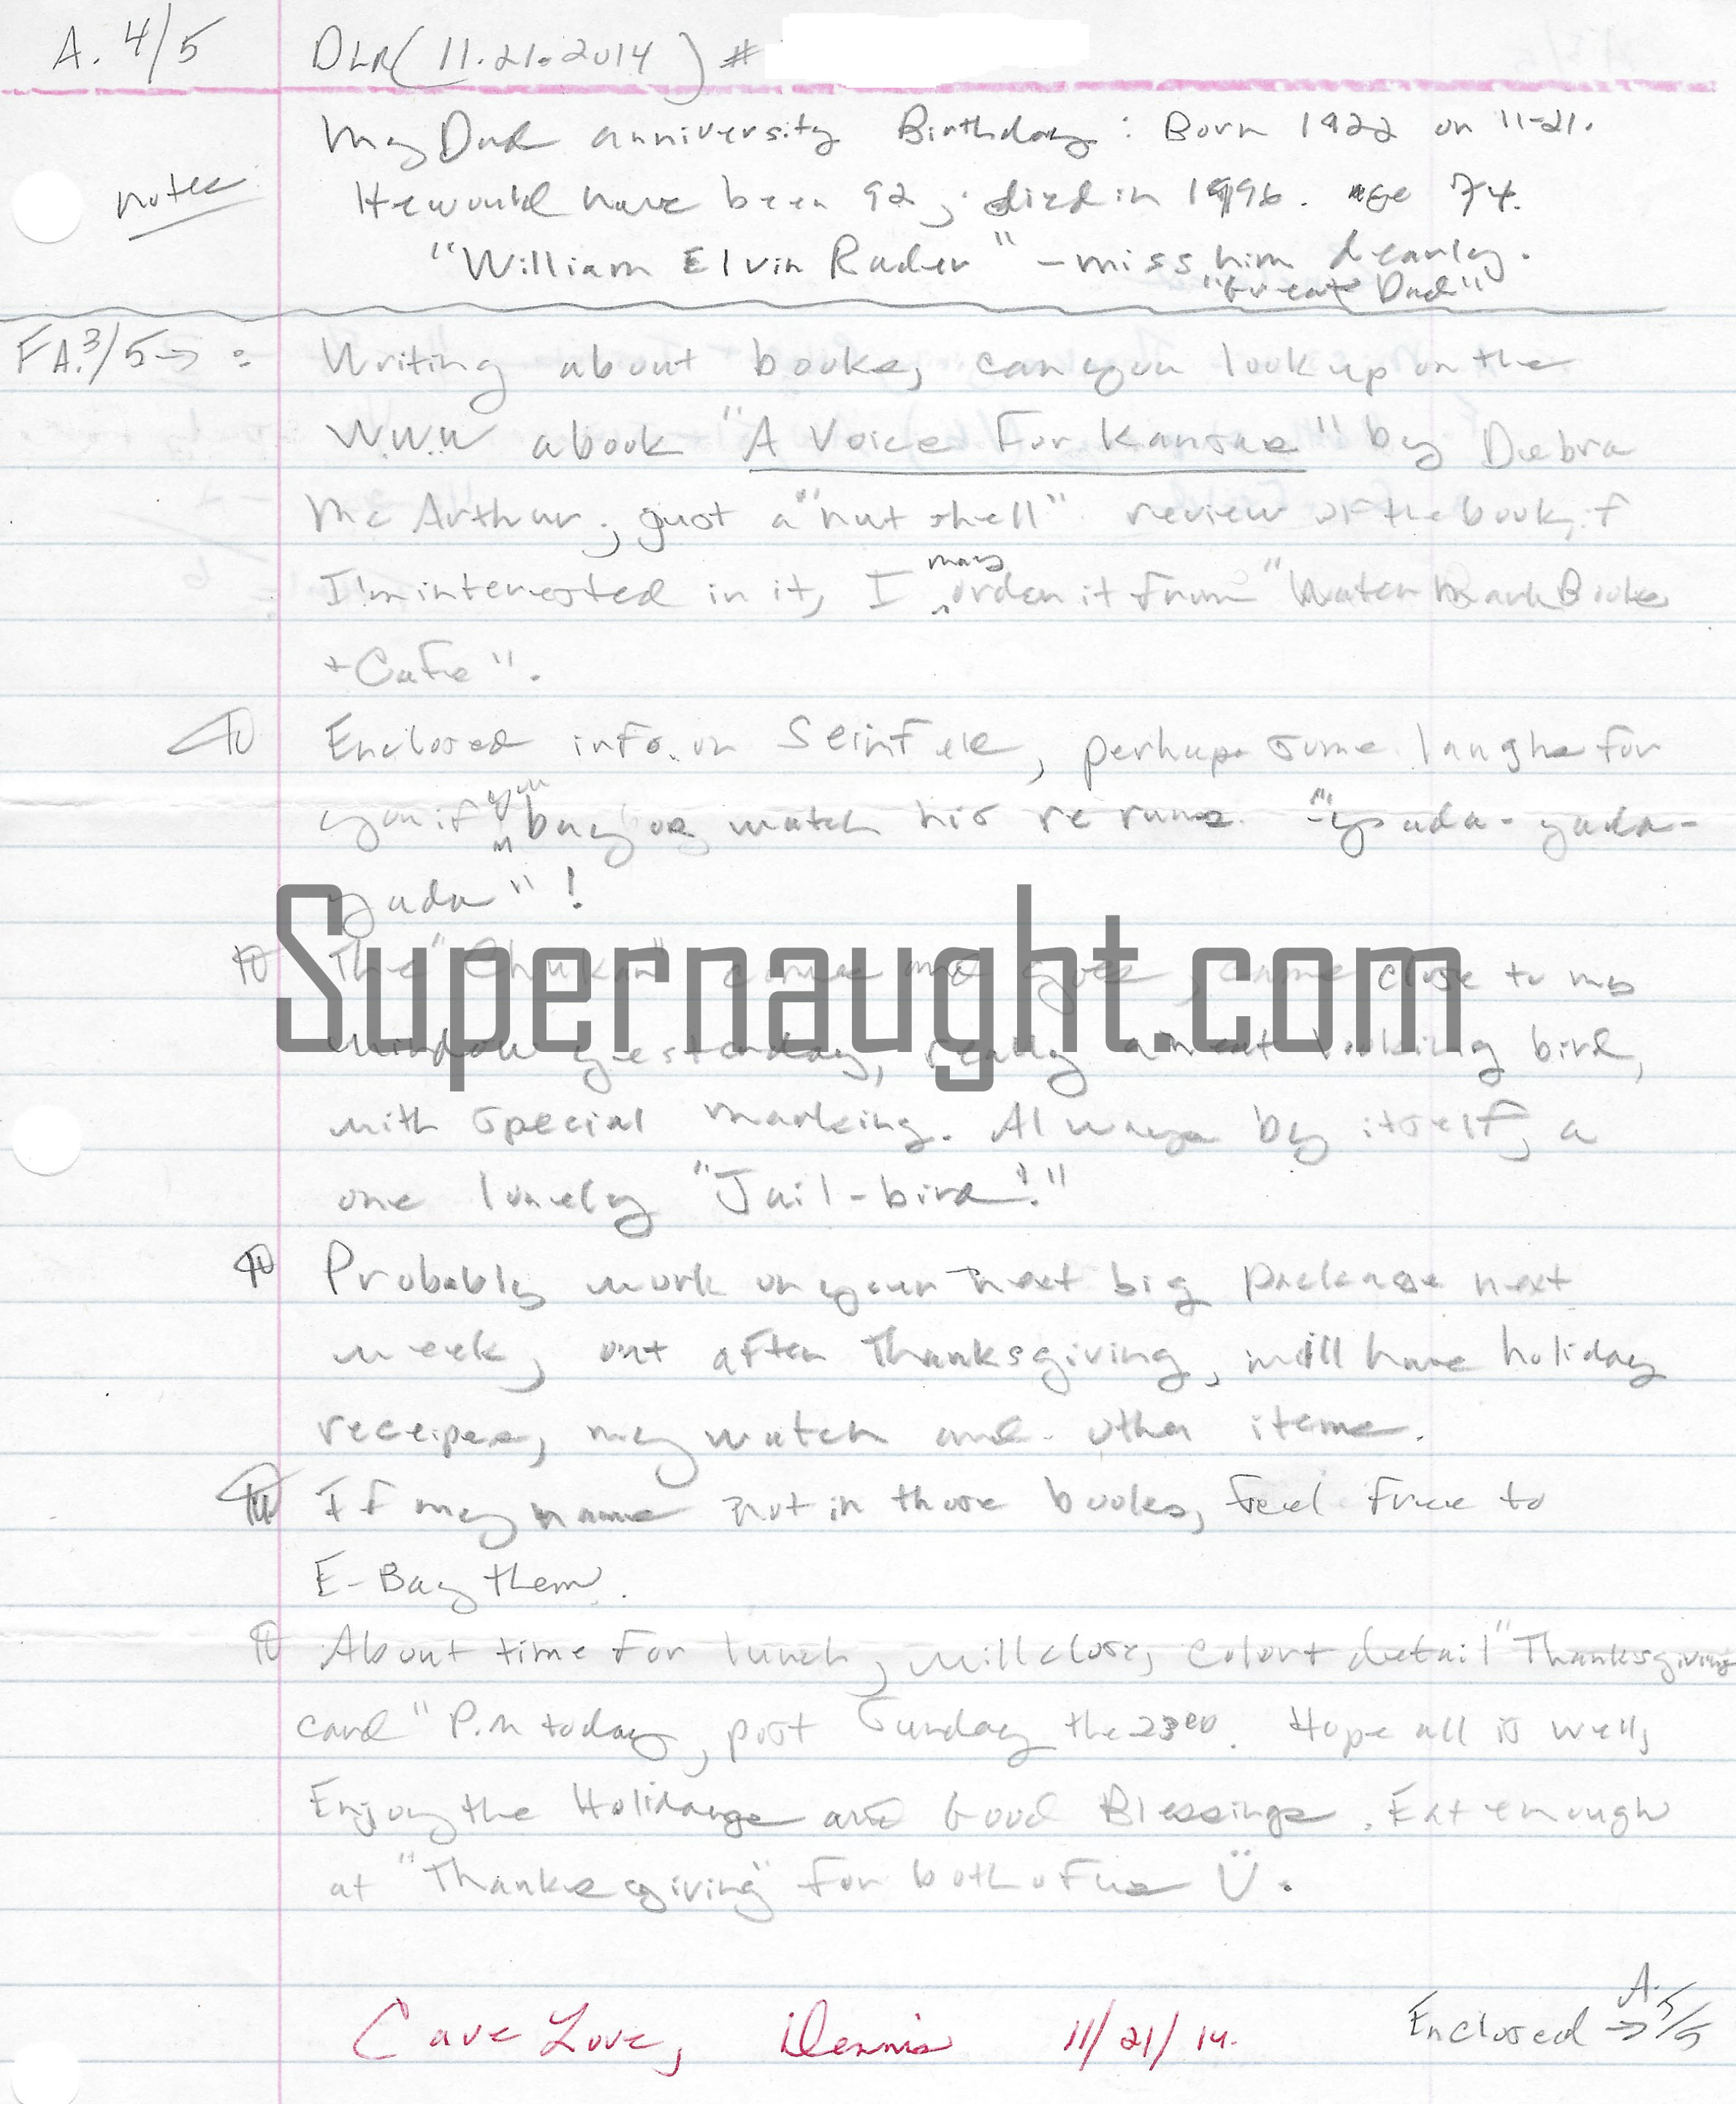 A. 4/5 DLR (11.21.2014) #
My Dad anniversity Birthday: Born 1922 on 11-21.
notes He would have been 92; died in 1996. age 74.
"William Elvin Rader" - miss him dearly.
"Great Dad"
FA.3/5→: Writing about books, can you look up on the
W.W.W a book "A Voice For Kansas" by Debra
McArthur; just a "nut shell" review of the book, if
I'm interested in it, I may order it from "Water Mark Books
+ Cafe".
Enclosed info. on Seinfeld, perhaps some laughs for
you if you buy or watch his re runs. "yada-yada-
yada"!
Supernaught.com
The "Chukar" came and goes, came close to my
window yesterday, really a neat looking bird,
with special marking. Always by itself, a
one lonely "Jail-bird!"
Probably work on your next big package next
week, out after Thanksgiving, will have holiday
receipes, my watch and other items.
If my name not in those books, feel free to
E-Bay them.
About time for lunch, will close, color + detail "Thanksgiving
card" P.M today, post Sunday the 23rd. Hope all is well,
Enjoy the Holidays and Good Blessings. Eat enough
at "Thanksgiving" for both of us Ü.
Cave Love, Dennis 11/21/14.
Enclosed → A. 5/5